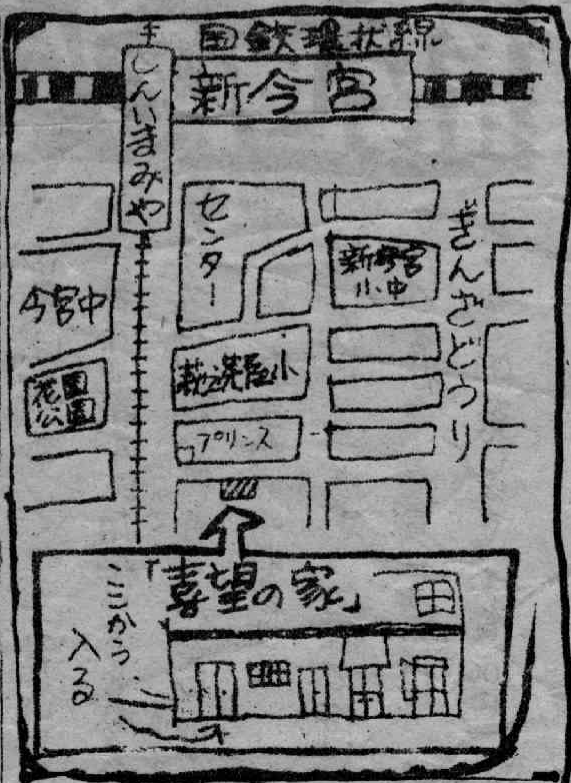 国鉄環状線
新今宮
しんいまみや
センター
新今宮
小中
ぎんざどうり
今宮中
萩之茶屋小
花園
公園
プリンス
「喜望の家」
ここから
入る